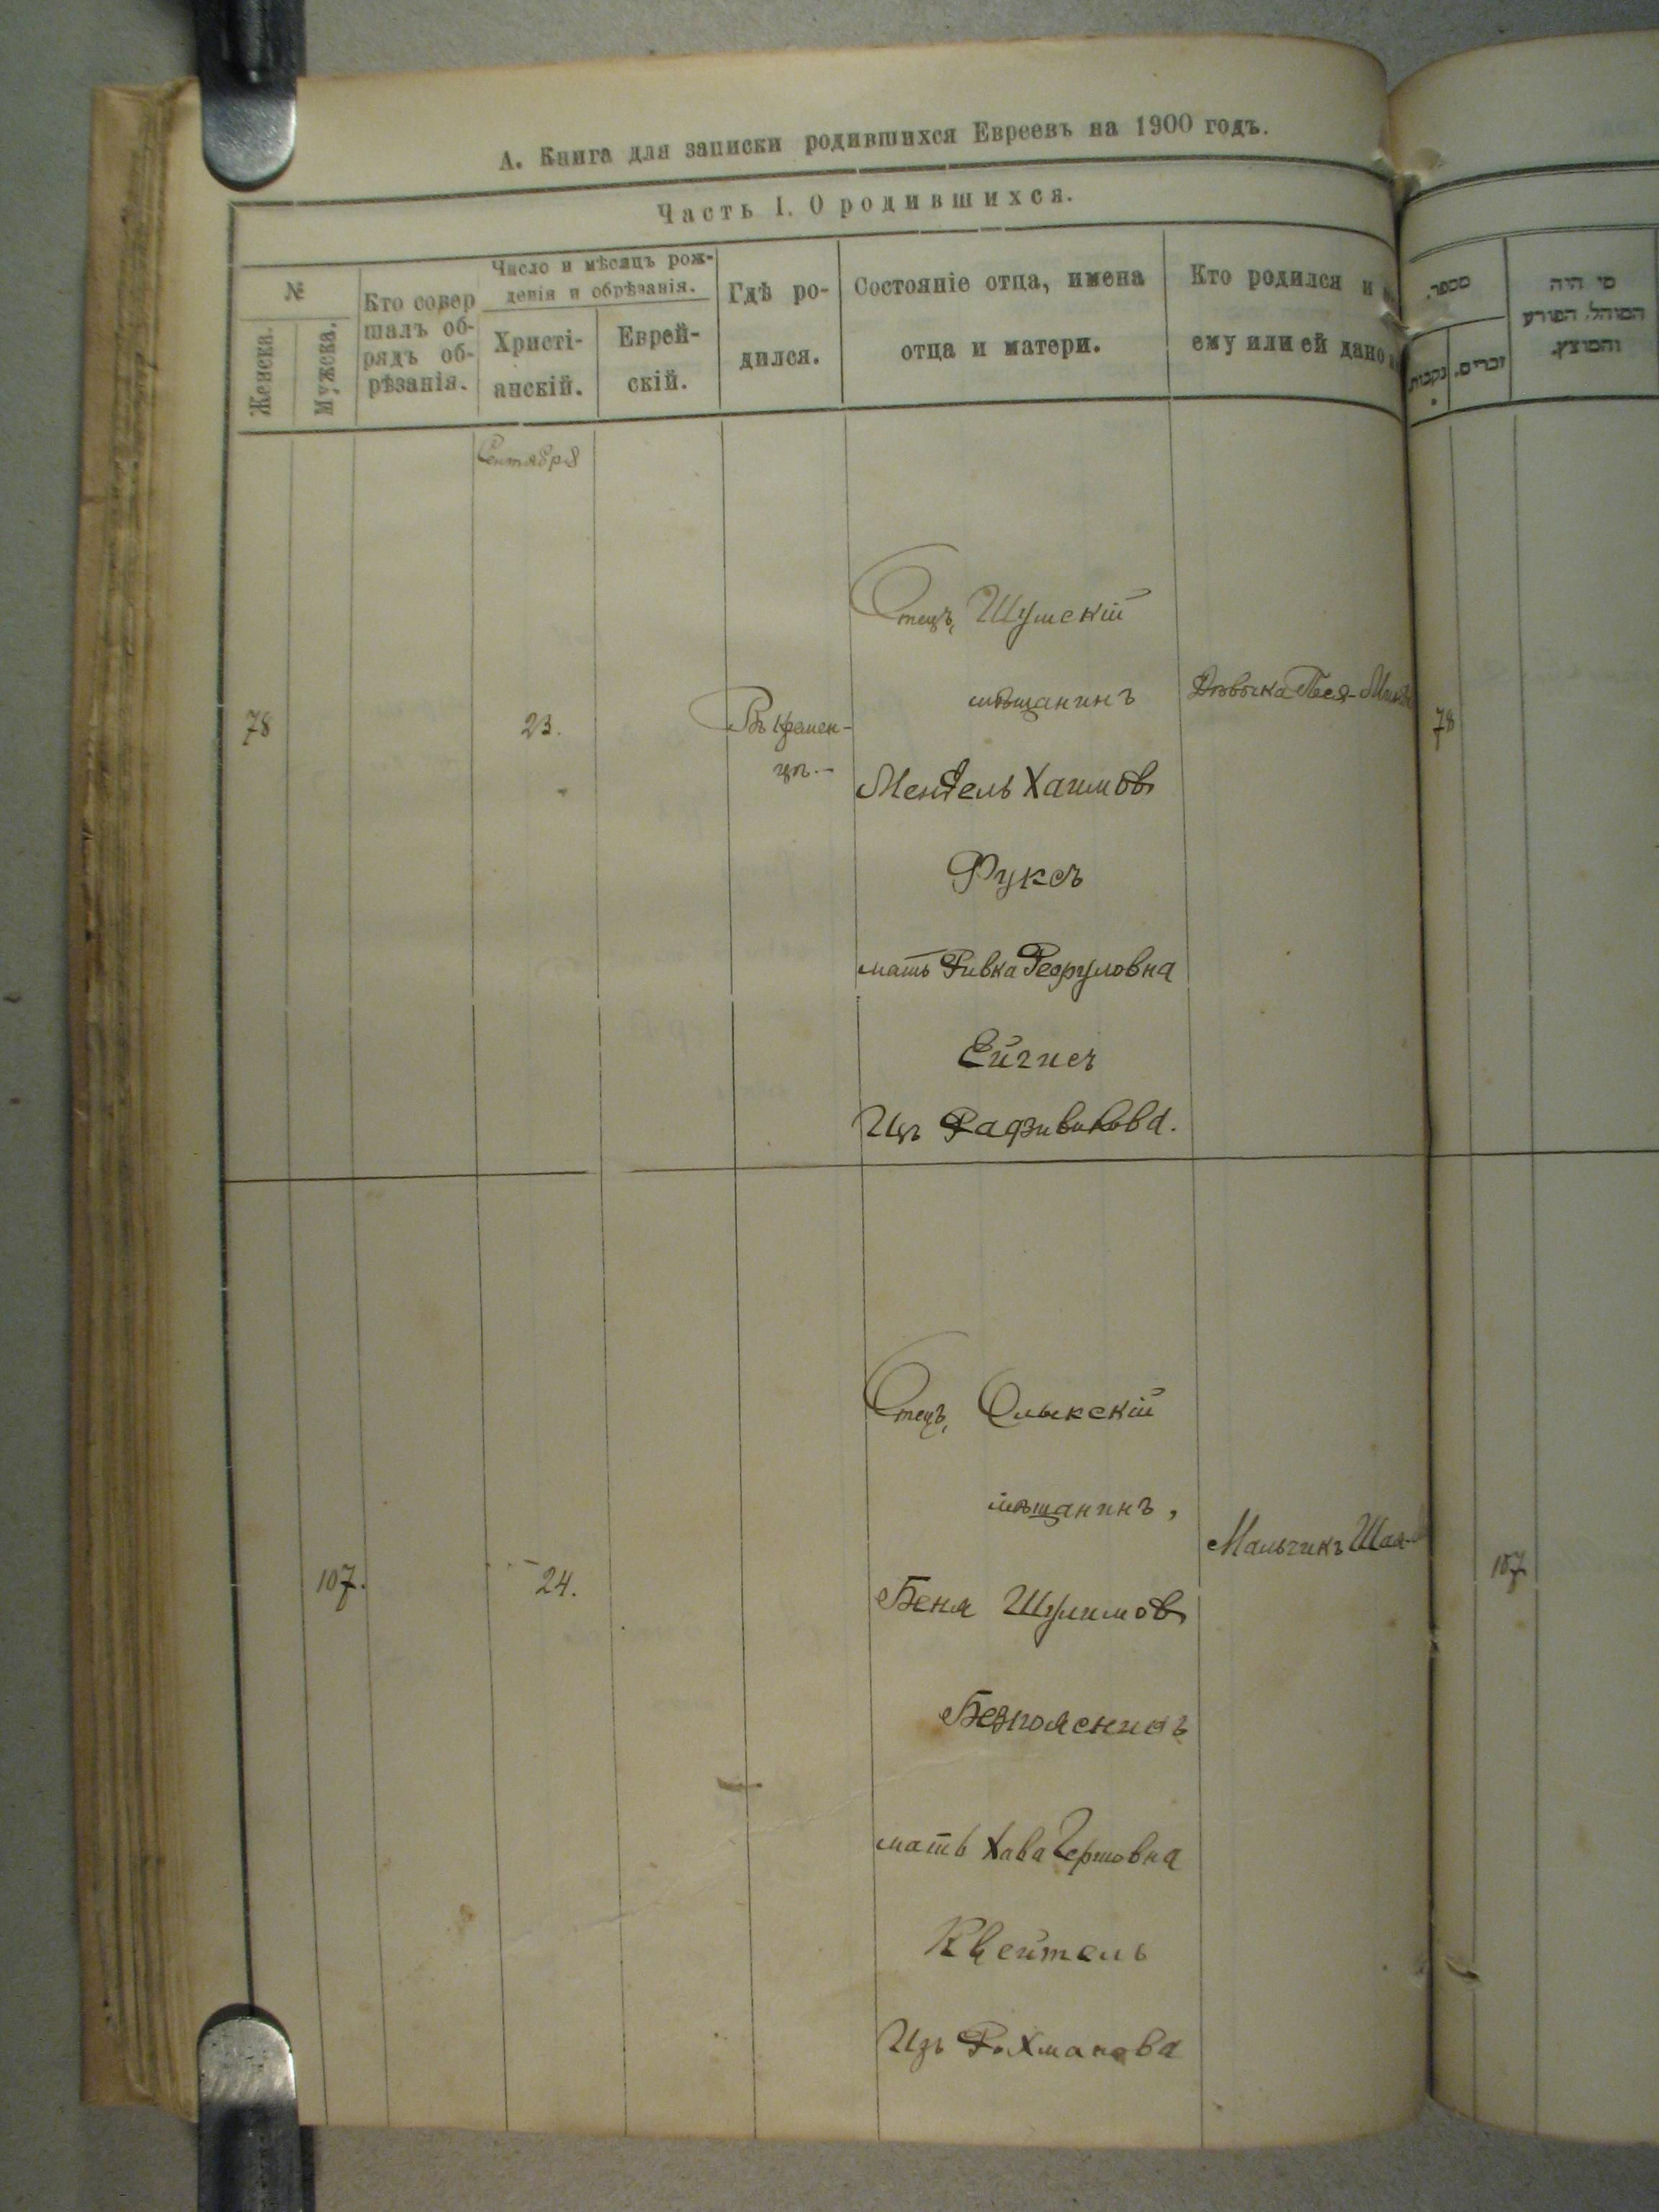 А. Книга для записки родившихся Евреевъ на 1900 годъ.
Часть I. О родившихся.
№
Женска.
Мужска.
Кто совер
шалъ об-
рядъ об-
рѣзанія.
Число и мѣсяцъ рож-
денія и обрѣзанія.
Христі-
анскій.
Еврей-
скій.
Гдѣ ро-
дился.
Состояніе отца, имена
отца и матери.
Кто родился и
ему или ей дано
מספר.
נקבות
זכרים.
מי היה
המוהל, הפורע
והמוצץ.
Сентября
78
23.
Въ Кремен-
цѣ.-
Отецъ, Шумскій
мѣщанинъ
Мендель Хаимовъ
Фуксъ
мать Ривка
Ейгисъ
Изъ Радзивилова.
Дѣвочка Песя-
78
107.
24.
Отецъ, Олыкскій
мѣщанинъ,
Беня Шулимовъ
Безпоясникъ
мать Хава Гершовна
Квейтель
Изъ Рахманова
Мальчикъ Шая-
107